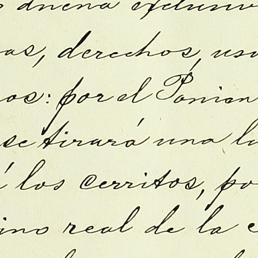 dueña exclusiv
as, derechos, us
os: por el Ponien
se tirará una l
á los cerritos, po
ino real de la c